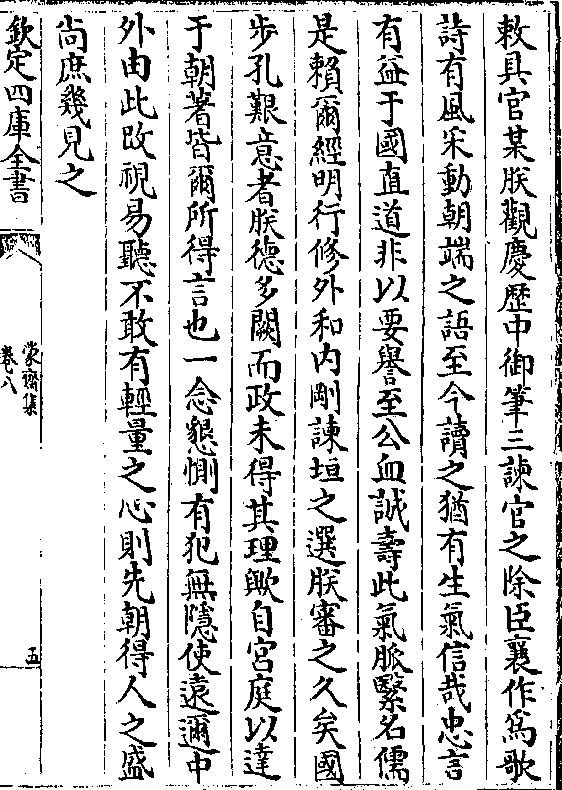 敕具官某朕觀慶歷中御筆三諫官之除臣襄作為歌
詩有風采動朝端之語至今讀之猶有生氣信哉忠言
有益于國直道非以要譽至公血誠壽此氣脈繄名儒
是賴爾經明行修外和内剛諫垣之選朕審之久矣國
步孔艱意者朕德多闕而政未得其理歟自宫庭以達
于朝著皆爾所得言也一念懇惻有犯無隱使遠邇中
外由此改視易聽不敢有輕量之心則先朝得人之盛
尚庶幾見之
欽定四庫全書
蒙齋集
卷八
五